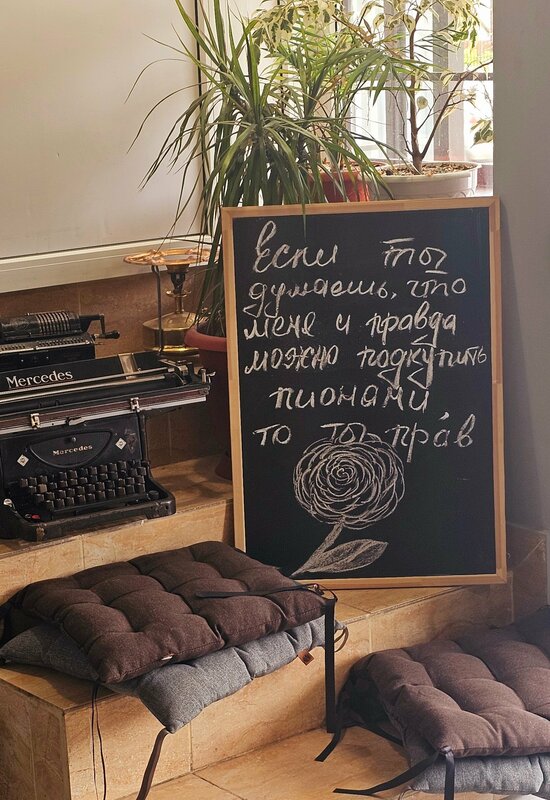 Если ты
думаешь, что
меня и правда
можно подкупить
пионами,
то ты прав
Mercedes
Mercedes